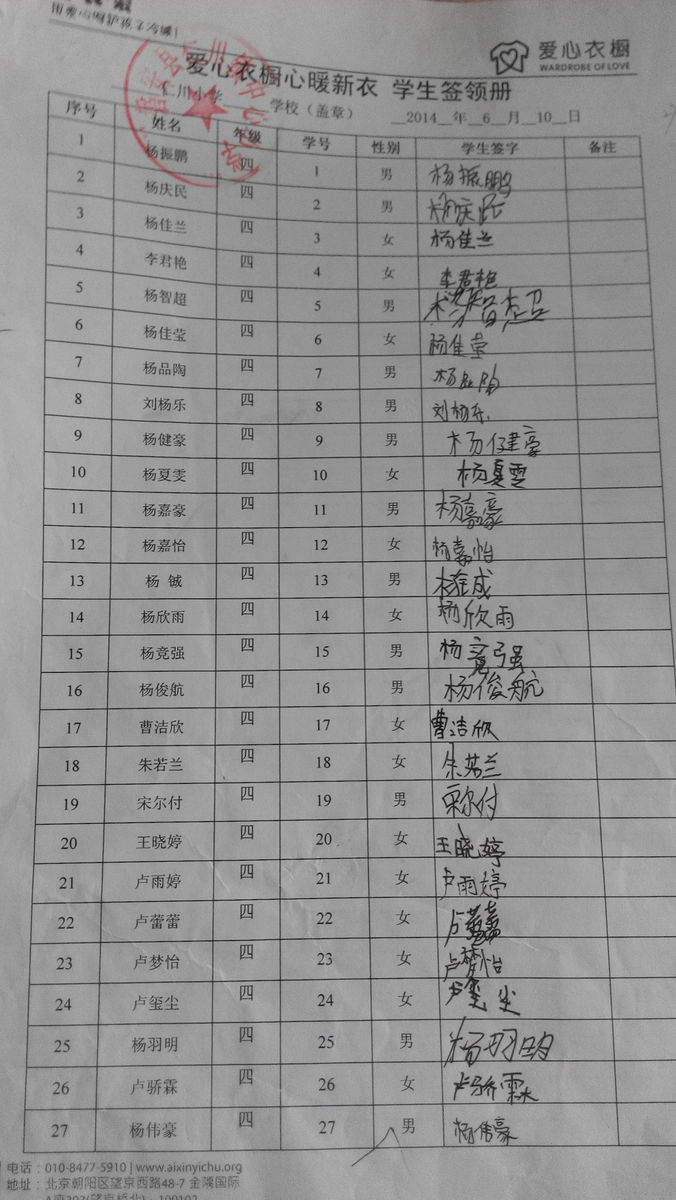 用爱心呵护孩子冷暖!
爱心衣橱
WARDROBE OF LOVE
爱心衣橱心暖新衣 学生签领册
仁川小学 学校（盖章） 2014 年 6 月 10 日
序号 姓名 年级 学号 性别 学生签字 备注
1 杨振鹏 四 1 男 杨振鹏
2 杨庆民 四 2 男 杨庆民
3 杨佳兰 四 3 女 杨佳兰
4 李君艳 四 4 女 李君艳
5 杨智超 四 5 男 杨智超
6 杨佳莹 四 6 女 杨佳莹
7 杨品陶 四 7 男 杨品陶
8 刘杨乐 四 8 男 刘杨乐
9 杨健豪 四 9 男 杨健豪
10 杨夏雯 四 10 女 杨夏雯
11 杨嘉豪 四 11 男 杨嘉豪
12 杨嘉怡 四 12 女 杨嘉怡
13 杨 铖 四 13 男 杨铖
14 杨欣雨 四 14 女 杨欣雨
15 杨竞强 四 15 男 杨竞强
16 杨俊航 四 16 男 杨俊航
17 曹洁欣 四 17 女 曹洁欣
18 朱若兰 四 18 女 朱若兰
19 宋尔付 四 19 男 宋尔付
20 王晓婷 四 20 女 王晓婷
21 卢雨婷 四 21 女 卢雨婷
22 卢蕾蕾 四 22 女 卢蕾蕾
23 卢梦怡 四 23 女 卢梦怡
24 卢玺尘 四 24 女 卢玺尘
25 杨羽明 四 25 男 杨羽明
26 卢骄霖 四 26 女 卢骄霖
27 杨伟豪 四 27 男 杨伟豪
电话：010-8477-5910 | www.aixinyichu.org
地址：北京朝阳区望京西路48-7 金隅国际